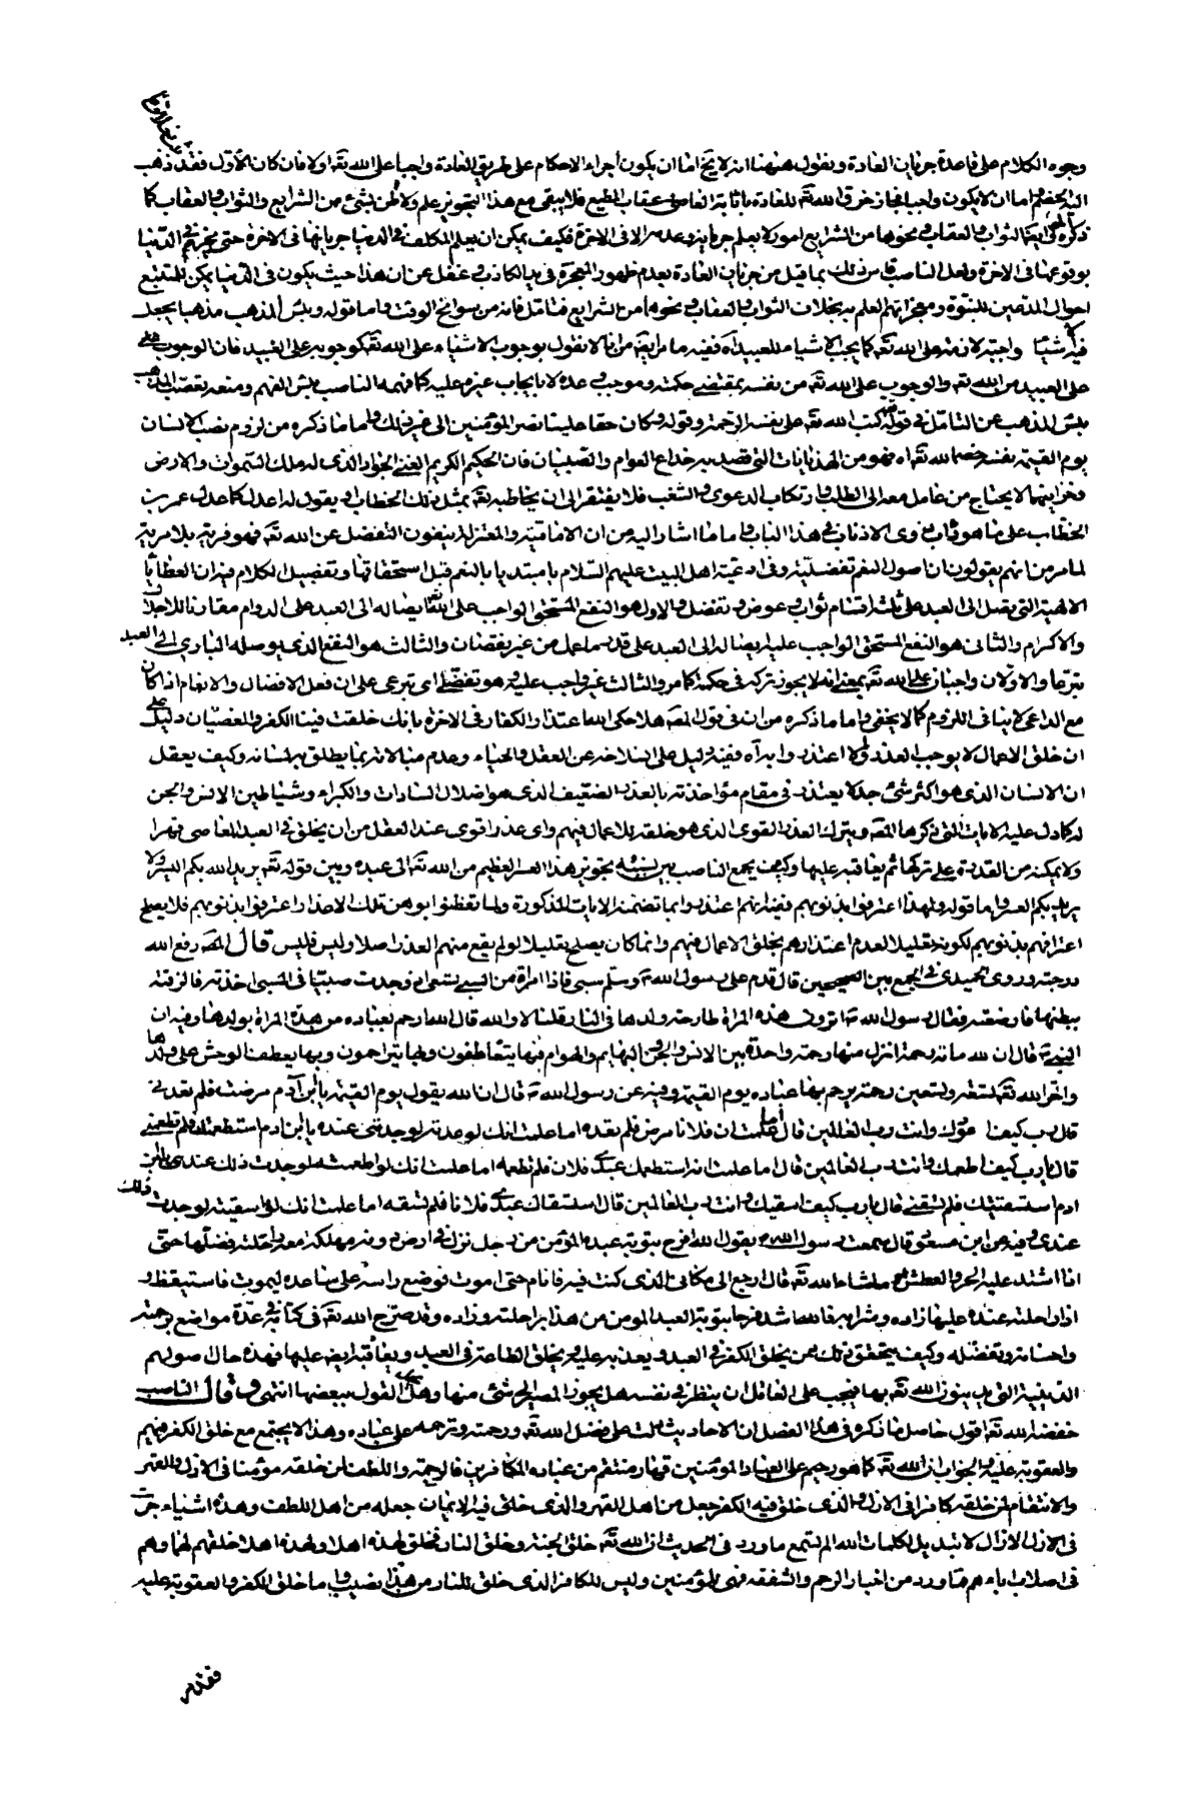 وجوه الكلام على قاعدة جريان العادة ونقول ههنا انه لا يخ اما ان يكون اجراء الاحكام على طريق العادة واجبا على الله تعه اولا فان كان الأول فقد ذهب
اما ان لا يكون واجبا فجاز خرق الله تعه للعادة باثابة العاصى وعقاب المطيع فلا يبقى مع هذا التجويز علم ولا ظن بشئ من الشرايع والثواب والعقاب كما
ذكره الثواب والعقاب ونحوها من الشرايع امور لا يعلم جريانه وعدمه الا فى الاخرة فكيف يمكن ان يعلم المكلف فى الدنيا جريانها فى الاخرة حتى يخبر فى الدنيا
بوقوعها فى الاخرة ولعل الناصب قاس ذلك بما قيل من جريان العادة بعدم ظهور المعجزة فى يد الكاذب وغفل عن ان هذا حيث يكون فى الدنيا يمكن للمتتبع
احوال المدعين للنبوة ومعجزاتهم العلم به بخلاف الثواب والعقاب ونحوها من الشرايع فتامل فانه من سوانح الوقت واما قوله وبئس المذهب مذهبا يجعل
فيه شيئا واجبة لازمة على الله تعه كما يجب الاشياء للعبيد اه ففيه ما مر ايضا من انا لا نقول بوجوب الاشياء على الله تعه كوجوبه على العبيد فان الوجوب
على العبيد من الله تعه والوجوب على الله تعه من نفسه بمقتضى حكمته وموجب وعده لا بايجاب غيره عليه كما فهمه الناصب بئس الفهم ومنعه تعصب المذهب
بئس المذهب عن التامل فى قوله كتب الله تعه على نفسه الرحمة وقوله وكان حقا علينا نصر المؤمنين الى غير ذلك واما ما ذكره من لزوم نصب الانسان
يوم القيمة نفسه خصما لله تعه اه فهو من الهذيانات التى قصد به خداع العوام والصبيان فان الحكيم الكريم الغنى الجواد الذى له ملك السموات والارض
وخزاينهما لا يحتاج من عامل معه الى الطلب وارتكاب الدعوى والشغب فلا يفتقر الى ان يخاطبه تعه بمثل ذلك الخطاب او يقول له اعدل كما عدل عمر بن
الخطاب على ما هو داب ذوى الاذناب فى هذا الباب واما ما اشار اليه من ان الامامية والمعتزلة ينفون التفضل عن الله تعه فهو فرية بلا مرية
لما مر من انهم يقولون ان اصول النعم تفضلية وفى ادعية اهل البيت عليهم السلام يا مبتديا بالنعم قبل استحقاقها وتفصيل الكلام فيه ان العطايا
الالهية التى يصل الى العبد على ثلثة اقسام ثواب وعوض وتفضل والاول هو النفع المستحق الواجب على الله تعه ايصاله الى العبد على الدوام مقارنا للاجلال
والاكرام والثانى هو النفع المستحق الواجب عليه ايصاله الى العبد على قدر ما عمل من غير نقصان والثالث هو النفع الذى يوصله البارى الى العبد
تبرعا والاولان واجبان على الله تعه بمعنى انه لا يجوز تركه فى حكمته كما مر والثالث غير واجب عليه وهو تفضلى اى تبرعى على ان فعل الافضال والانعام اذا كان
مع الداعى لا ينافى اللزوم كما لا يخفى واما ما ذكره من ان فى قول المصه هلا حكى الله اعتذار الكفار فى الاخرة بانك خلقت فينا الكفر والعصيان دليل على
ان خلق الاعمال لا يوجب العذر والا اعتذروا به اه ففيه دليل على انسلاخه عن العقل والحياء وعدم مبالاته بما يطلق به لسانه وكيف يعقل
ان الانسان الذى هو اكثر شئ جدلا يعتذر فى مقام مؤاخذته بالعذر الضعيف الذى هو اضلال السادات والكبراء وشياطين الانس والجن
له كما دل عليه الايات التى ذكرها المصه ويترك العذر القوى الذى هو خلقه للاعمال فيهم واى عذر اقوى عند العقل من ان يخلق فى العبد المعاصى قهرا
ولا يمكنه من القدرة على تركها ثم يعاقبه عليها وكيف يجمع الناصب بين تجويز هذا العسر العظيم من الله تعه الى عبده وبين قوله تعه يريد الله بكم اليسر ولا
يريد بكم العسر واما قوله ولهذا اعترفوا بذنوبهم ففيه انهم اعتذروا بما تضمنه الايات المذكورة ولما تفطنوا بوهن تلك الاعذار اعترفوا بذنوبهم فلا يصلح
اعترافهم بذنوبهم لكونه تعليلا لعدم اعتذارهم بخلق الاعمال فيهم وانما كان يصلح تعليلا لو لم يقع منهم العذر اصلا وليس فليس قال المصه رفع الله
درجته وروى الحميدى فى الجمع بين الصحيحين قال قدم على رسول الله وسلم سبى فاذا امرأة من السبى تسعى اذ وجدت صبيا فى السبى اخذته فالزقته
ببطنها فارضعته فقال رسول الله ص اترون هذه المراة طارحة ولدها فى النار قلنا لا والله قال الله ارحم بعباده من هذه المراة بولدها وفيه ان
النبى ص قال ان لله مائة رحمة انزل منها رحمة واحدة بين الانس والجن والبهايم والهوام فبها يتعاطفون وبها يتراحمون وبها يعطف الوحش على ولدها
واخر الله تعه تسعة وتسعين رحمة يرحم بها عباده يوم القيمة وفيه عن رسول الله ص قال ان الله يقول يوم القيمة يا ابن آدم مرضت فلم تعدنى
قال رب كيف اعودك وانت رب العالمين قال اما علمت ان فلانا مرض فلم تعده اما علمت انك لو عدته لوجدتنى عنده يا ابن ادم استطعمتك فلم تطعمنى
قال يا رب كيف اطعمك وانت رب العالمين قال اما علمت انه استطعمك عبدى فلان فلم تطعمه اما علمت انك لو اطعمته لوجدت ذلك عندى يا ابن
ادم استسقيتك فلم تسقنى قال يا رب كيف اسقيك وانت رب العالمين قال استسقاك عبدى فلانا فلم تسقه اما علمت انك لو اسقيته لوجدت ذلك
عندى وفيه عن ابن مسعود قال سمعت رسول الله ص يقول الله افرح بتوبة عبده المؤمن من رجل نزل فى ارض دوية مهلكة معه راحلته فضلها حتى
اذا اشتد عليه الحر والعطش ما شاء الله تعه قال ارجع الى مكانى الذى كنت فيه فانام حتى اموت فوضع راسه على ساعده ليموت فاستيقظ و
اذا راحلته عنده عليها زاده وشرابه فالله اشد فرحا بتوبة العبد المومن من هذا براحلته وزاده وقد صرح الله تعه فى كتابه فى عدة مواضع برحمته
واحسانه وتفضله وكيف يتحقق ذلك ممن يخلق الكفر فى العبد ويعذبه عليه ويخلق الطاعة فى العبد ويعاقبه ايضا عليها فهذه حال اصولهم
الدينية التى يدينون الله تعه بها فيجب على العاقل ان ينظر فى نفسه هل يجوز المصير الى شئ منها وهل القول ببعضها انتهى وقال الناصب
خفضه الله تعه اقول حاصل ما ذكره فى هذا الفصل ان الاحاديث دلت على فضل الله تعه ورحمته وترحمه على عباده وهذا لا يجتمع مع خلق الكفر فيهم
والعقوبة عليه والجواب ان الله تعه كما هو رحيم على العباد المؤمنين قهار منتقم من عباده الكافرين فالرحمة واللطف لمن خلقه مؤمنا فى الازل والقهر
والانتقام لمن خلقه كافرا فى الازل والذى خلق فيه الكفر جعل من اهل القهر والذى خلق فيه الايمان جعله من اهل اللطف وهذه اشياء جرت
فى الازل الازال لا تبديل لكلمات الله الم تسمع ما ورد فى الحديث ان الله تعه خلق الجنة وخلق النار فخلق لهذه اهلا ولهذه اهلا خلقهم لهما وهم
فى اصلاب اباءهم فما ورد من اخبار الرحم والشفقة فهى للمؤمنين وليس للكافر الذى خلق للنار من هذا نصيب واما خلق الكفر والعقوبة عليه